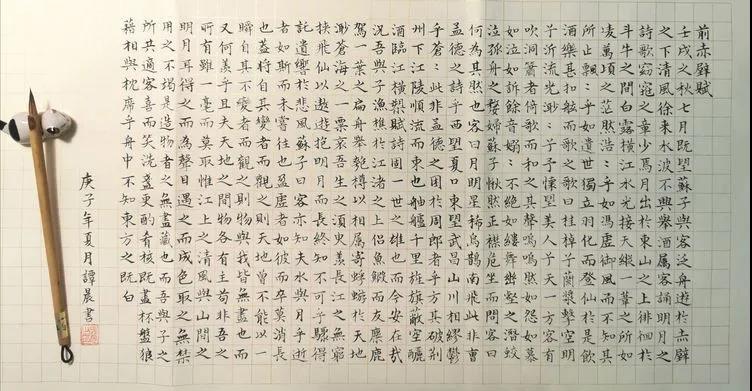 前赤壁賦
壬戌之秋七月既望蘇子與客泛舟遊於赤壁
之下清風徐来水波不興舉酒属客誦明月之
詩歌窈窕之章少焉月出於東山之上徘徊於
斗牛之間白露横江水光接天縱一葦之所如
凌萬頃之茫然浩:乎如馮虚御風而不知其
所止飄:乎如遺世獨立羽化而登仙於是飲
酒樂甚扣舷而歌之歌曰桂棹兮蘭槳擊空明
兮泝流光渺:兮予懷望美人兮天一方客有
吹洞簫者倚歌而和之其聲嗚嗚然如怨如慕
如泣如訴餘音嫋:不絕如縷舞幽壑之潛蛟
泣孤舟之嫠婦蘇子愀然正襟危坐而問客曰
何為其然也客曰月明星稀烏鵲南飛此非曹
孟德之詩乎西望夏口東望武昌山川相繆鬱
乎蒼:此非孟德之困於周郎者乎方其破荆
州下江陵順流而東也舳艫千里旌旗蔽空釃
酒臨江横槊賦詩固一世之雄也而今安在哉
況吾與子漁樵於江渚之上侶魚鰕而友麋鹿
駕一葉之扁舟舉匏樽以相属寄蜉蝣於天地
渺蒼海之一粟哀吾生之須臾羨長江之無窮
挾飛仙以遨遊抱明月而長終知不可乎驟得
託遺響於悲風蘇子曰客亦知夫水與月乎逝
者如斯而未嘗往也盈虚者如彼而卒莫消長
也蓋將自其變者而觀之則天地曾不能以一
瞬自其不變者而觀之則物與我皆無盡也而
又何羨乎且夫天地之間物各有主苟非吾之
所有雖一毫而莫取惟江上之清風與山間之
明月耳得之而為聲目遇之而成色取之無禁
用之不竭是造物者之無盡藏也而吾與子之
所共適客喜而笑洗盞更酌肴核既盡杯盤狼
藉相與枕席乎舟中不知東方之既白
庚子年夏月譚晨書